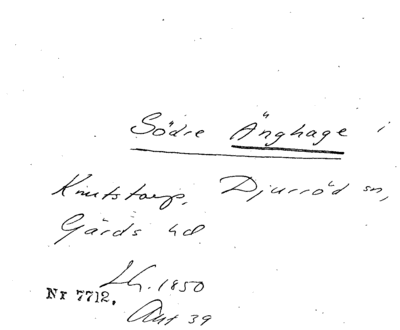 Södre Änghage i
Knutstorp, Djurröd sn,
Gärds hd.
Lh. 1850
Nr 7712.
Akt 39